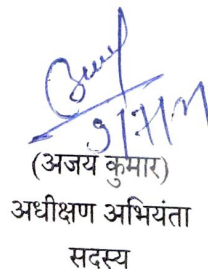 (अजय कुमार)
अधीक्षण अभियंता
सदस्य